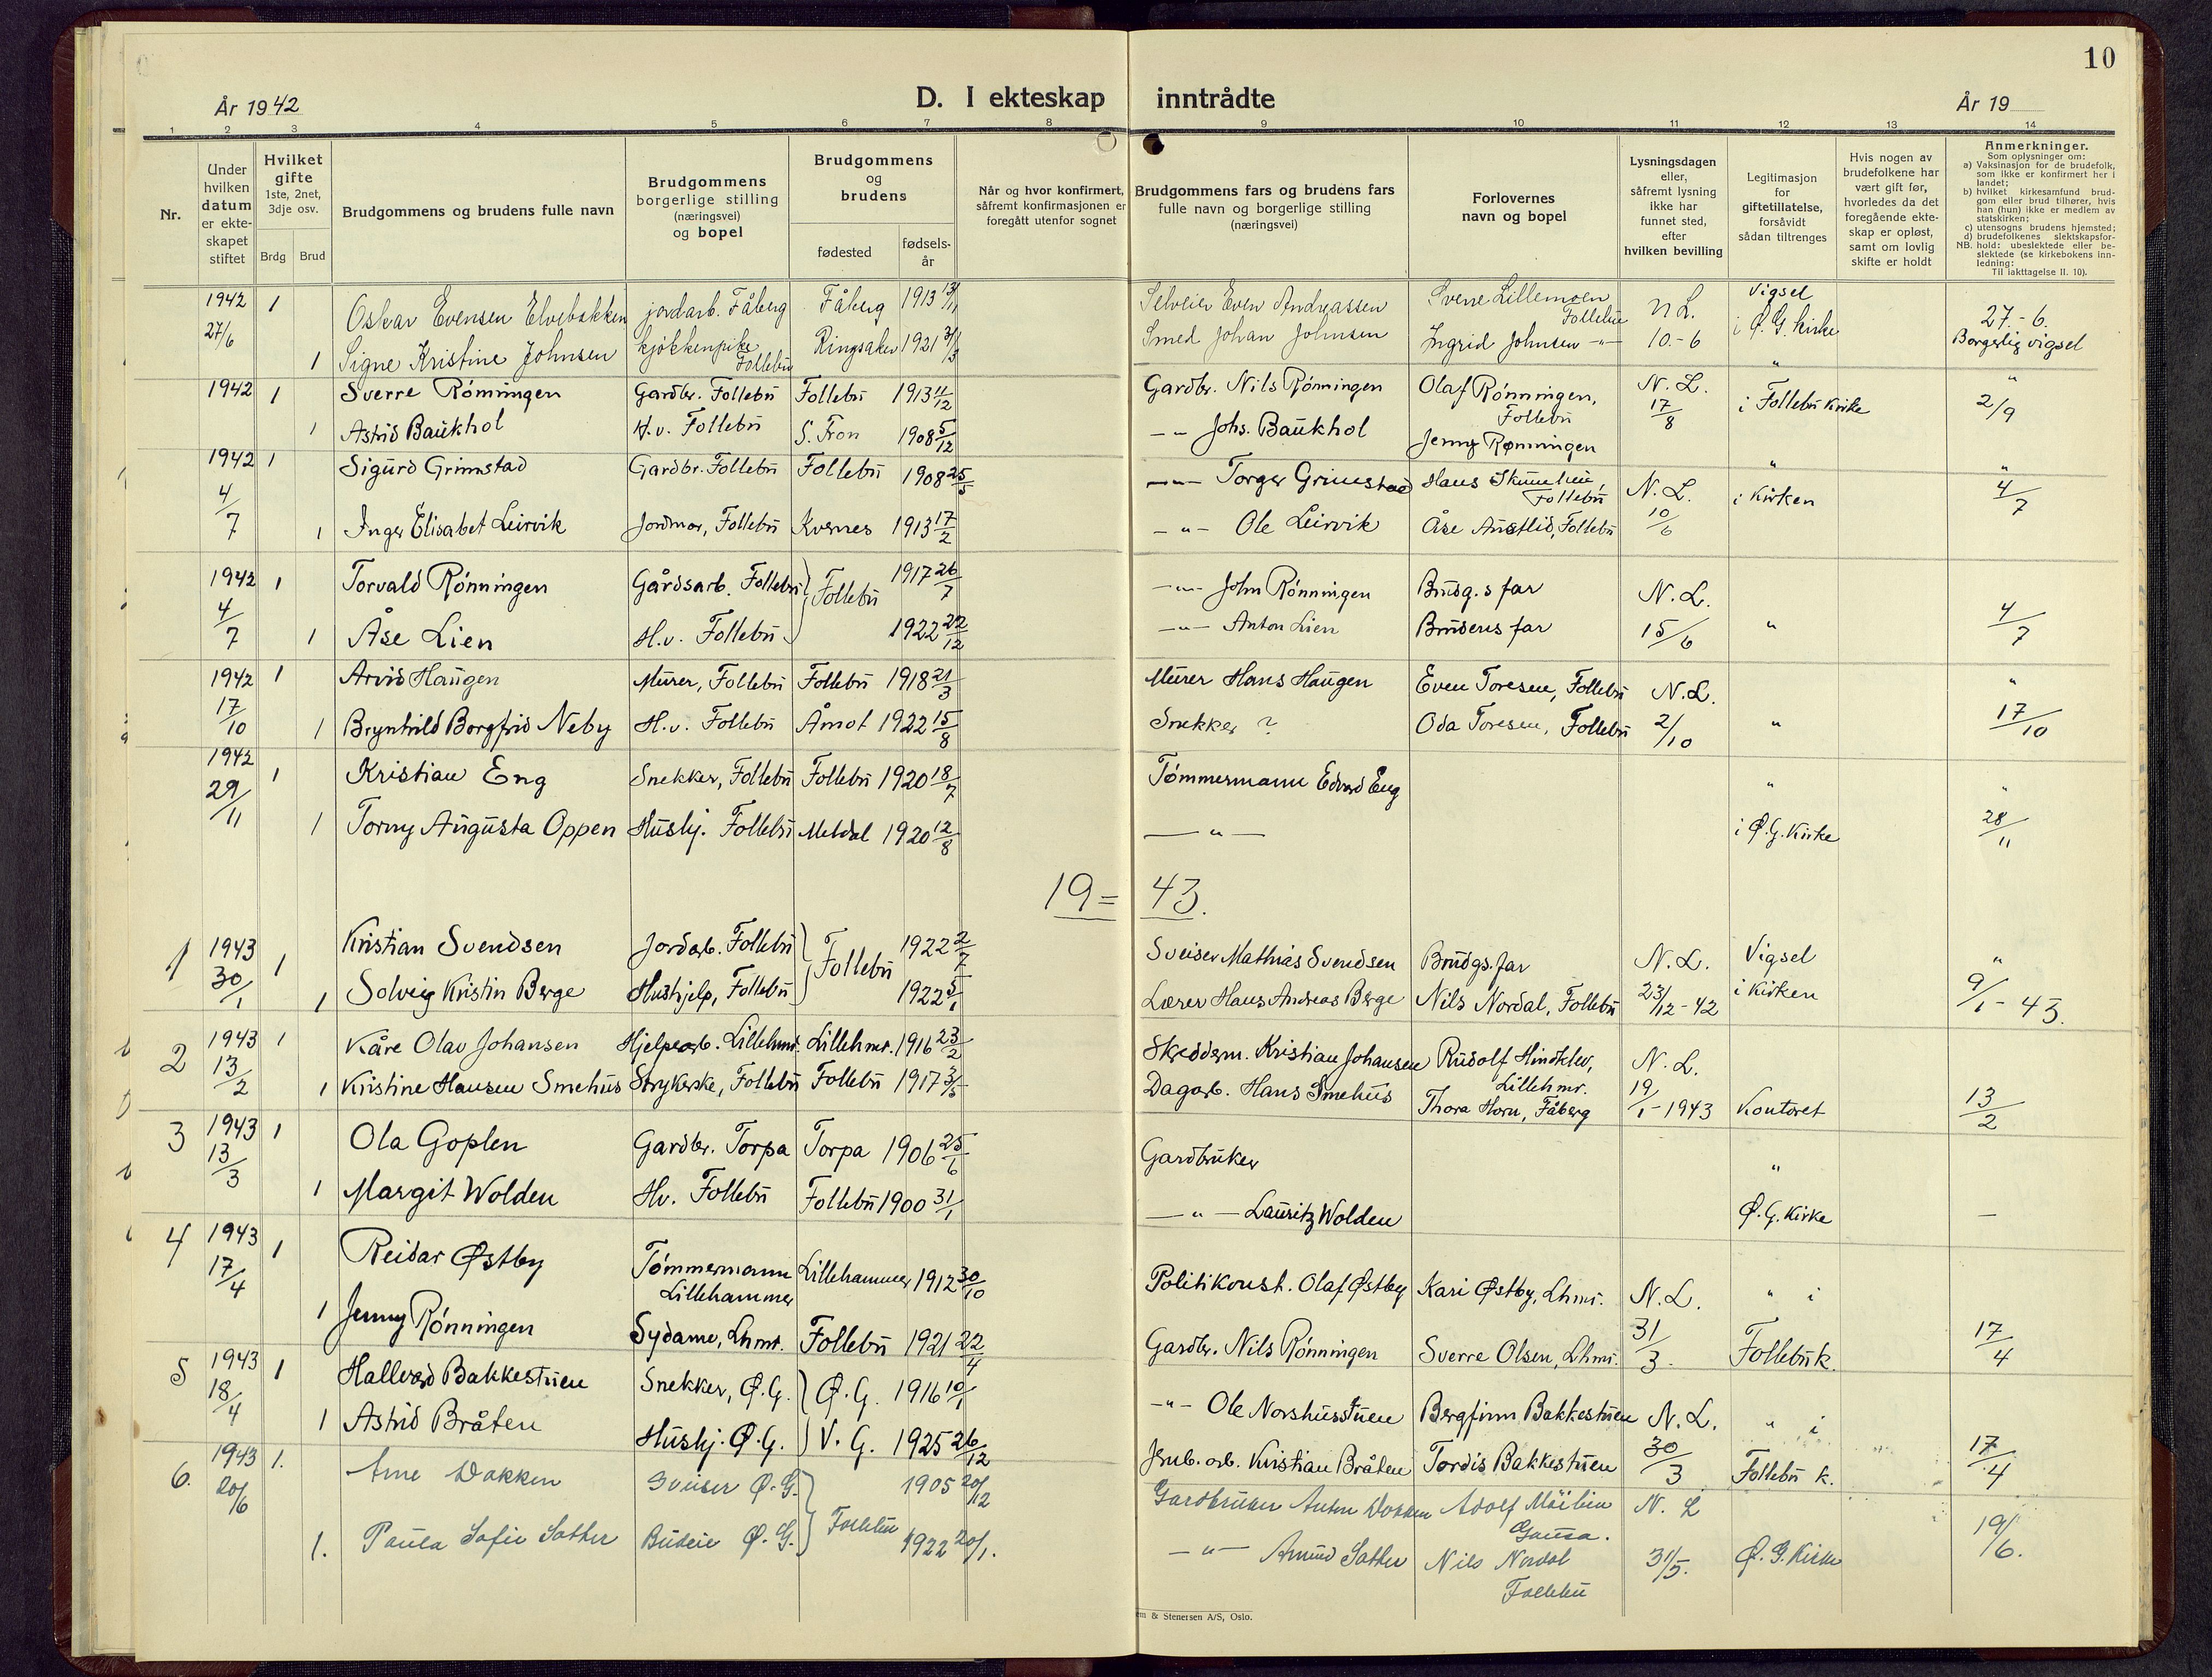 10
År 1942
D. I ekteskap inntrådte
År 19
1 2 3 4 5 6 7 8 9 10 11 12 13 14
Nr.
Under hvilken datum er ekteskapet stiftet
Hvilket gifte 1ste, 2net, 3dje osv.
Brdg Brud
Brudgommens og brudens fulle navn
Brudgommens borgerlige stilling (næringsvei) og bopel
Brudgommens og brudens
fødested
fødselsår
Når og hvor konfirmert, såfremt konfirmasjonen er foregått utenfor sognet
Brudgommens fars og brudens fars fulle navn og borgerlige stilling (næringsvei)
Forlovernes navn og bopel
Lysningsdagen eller, såfremt lysning ikke har funnet sted, efter hvilken bevilling
Legitimasjon for giftetillatelse, forsåvidt sådan tiltrenges
Hvis nogen av brudefolkene har vært gift før, hvorledes da det foregående ekteskap er opløst, samt om lovlig skifte er holdt
Anmerkninger.
Som oplysninger om:
a) Vaksinasjon for de brudefolk, som ikke er konfirmert her i landet;
b) hvilket kirkesamfund brudgom eller brud tilhører, hvis han (hun) ikke er medlem av statskirken;
c) utensogns brudens hjemsted;
d) brudefolkenes slektskapsforhold: ubeslektede eller beslektede (se kirkebokens innledning:
NB. Til iakttagelse II. 10).
1942 1 Oskar Evensen Elvebakken jordarb. Fåberg Fåberg 1913 13/11 Selveier Even Andreassen Sverre Lillemoen Follebu N L. Vigsel i Ø. G. Kirke 27.-6.
27/6 1 Signe Kristine Johnsen kjøkkenpike Follebu Ringsaker 1921 31/3 Smed Johan Johnsen Ingrid Johnsen -"- 10.-6 Borgerlig vigsel
1942 1 Sverre Rønningen Gardbr. Follebu Follebu 1913 11/12 Gardbr. Nils Rønningen Olaf Rønningen, Follebu N. L. 17/8 " i Follebu Kirke " 2/9
1 Astrid Baukhol H.v. Follebu S. Fron 1908 5/12 -"- Johs. Baukhol Jenny Rønningen
1942 1 Sigurd Grimstad Gardbr. Follebu Follebu 1908 25/5 -"- Torger Grimstad Hans Follebu N. L. " i Kirken " 4/7
4/7 1 Inger Elisabet Leirvik Jordmor, Follebu Kvernes 1913 17/2 -"- Ole Leirvik Åse Austlid, Follebu 10/6
1942 1 Torvald Rønningen Gårdsarb. Follebu Follebu 1917 26/7 -"- John Rønningen Brudg.s far N. L.
4/7 1 Åse Lien H.v. Follebu 1922 22/12 -"- Anton Lien Brudens far 15/6 " 4/7
1942 1 Arvid Haugen Murer, Follebu Follebu 1918 21/3 Murer Hans Haugen Even Toresen, Follebu N.L. "
17/10 1 Brynhild Borgfrid Neby H.v. Follebu Åmot 1922 15/8 Snekker ? Oda Toresen, Follebu 2/10 " 17/10
1942 1 Kristian Eng Snekker, Follebu Follebu 1920 18/7 Tømmermann Edvard Eng " "
29/11 1 Torny Augusta Oppen Hushj. Follebu Meldal 1920 12/8 — " — i Ø.G. Kirke 28/11
19=43.
1 1943 1 Kristian Svendsen Jordarb. Follebu Follebu 1922 2/7 Sveiser Mathias Svendsen Brudgs. far N. L. Vigsel "
30/1 1 Solveig Kristin Berge Hushjelp, Follebu 1922 5/1 Lærer Hans Andreas Berge Nils Nordal, Follebu 23/12-42 i Kirken 9/1-43.
2 1943 1 Kåre Olav Johansen Hjelpearb. Lillehmr. Lillehmr. 1916 23/2 Skredderm. Kristian Johansen Rudolf Hindklev, Lillehmr. N. L.
13/2 1 Kristine Hansen Smehus Strykerske, Follebu Follebu 1917 3/5 Dagarb. Hans Smehus Thora Horn, Fåberg 19/1-1943 Kontoret 13/2
3 1943 1 Ola Goplen Gardbr. Torpa Torpa 1906 25/6 Gardbruker "
13/3 1 Margit Wolden Hv. Follebu Follebu 1900 31/1 — " — Lauritz Wolden Ø.G. Kirke —
4 1943 1 Reidar Østby Tømmermann Lillehammer Lillehammer 1912 30/10 Politikonst. Olaf Østby Kari Østby, Lhmr. N. L. " i
17/4 1 Jenny Rønningen Sydame, Lhmr. Follebu 1921 22/4 Gardbr. Nils Rønningen Sverre Olsen, Lhmr. 31/3. Follebu k. 17/4
5 1943 1 Hallvard Bakkestuen Snekker, Ø.G. Ø.G. 1916 10/1 -"- Ole Norshusstuen Bergfinn Bakkestuen N. L. " i
18/4 1 Astrid Bråten Hushj. Ø.G. V. G. 1925 26/12 Jernb. arb. Kristian Bråten Tordis Bakkestuen 30/3 Follebu k. 17/4
6. 1943 1. Arne Dokken Sveiser Ø.G. Follebu 1905 20/12 Gardbruker Anton Dokken Adolf Gausa. N. L
20/6 1. Paula Sofie Sæther Budeie Ø. G. 1922 20/1. — " — Amund Sæther Nils Nordal Follebu 31/5. Ø. G. Kirke 19/6.
em & Stenersen A/S, Oslo.